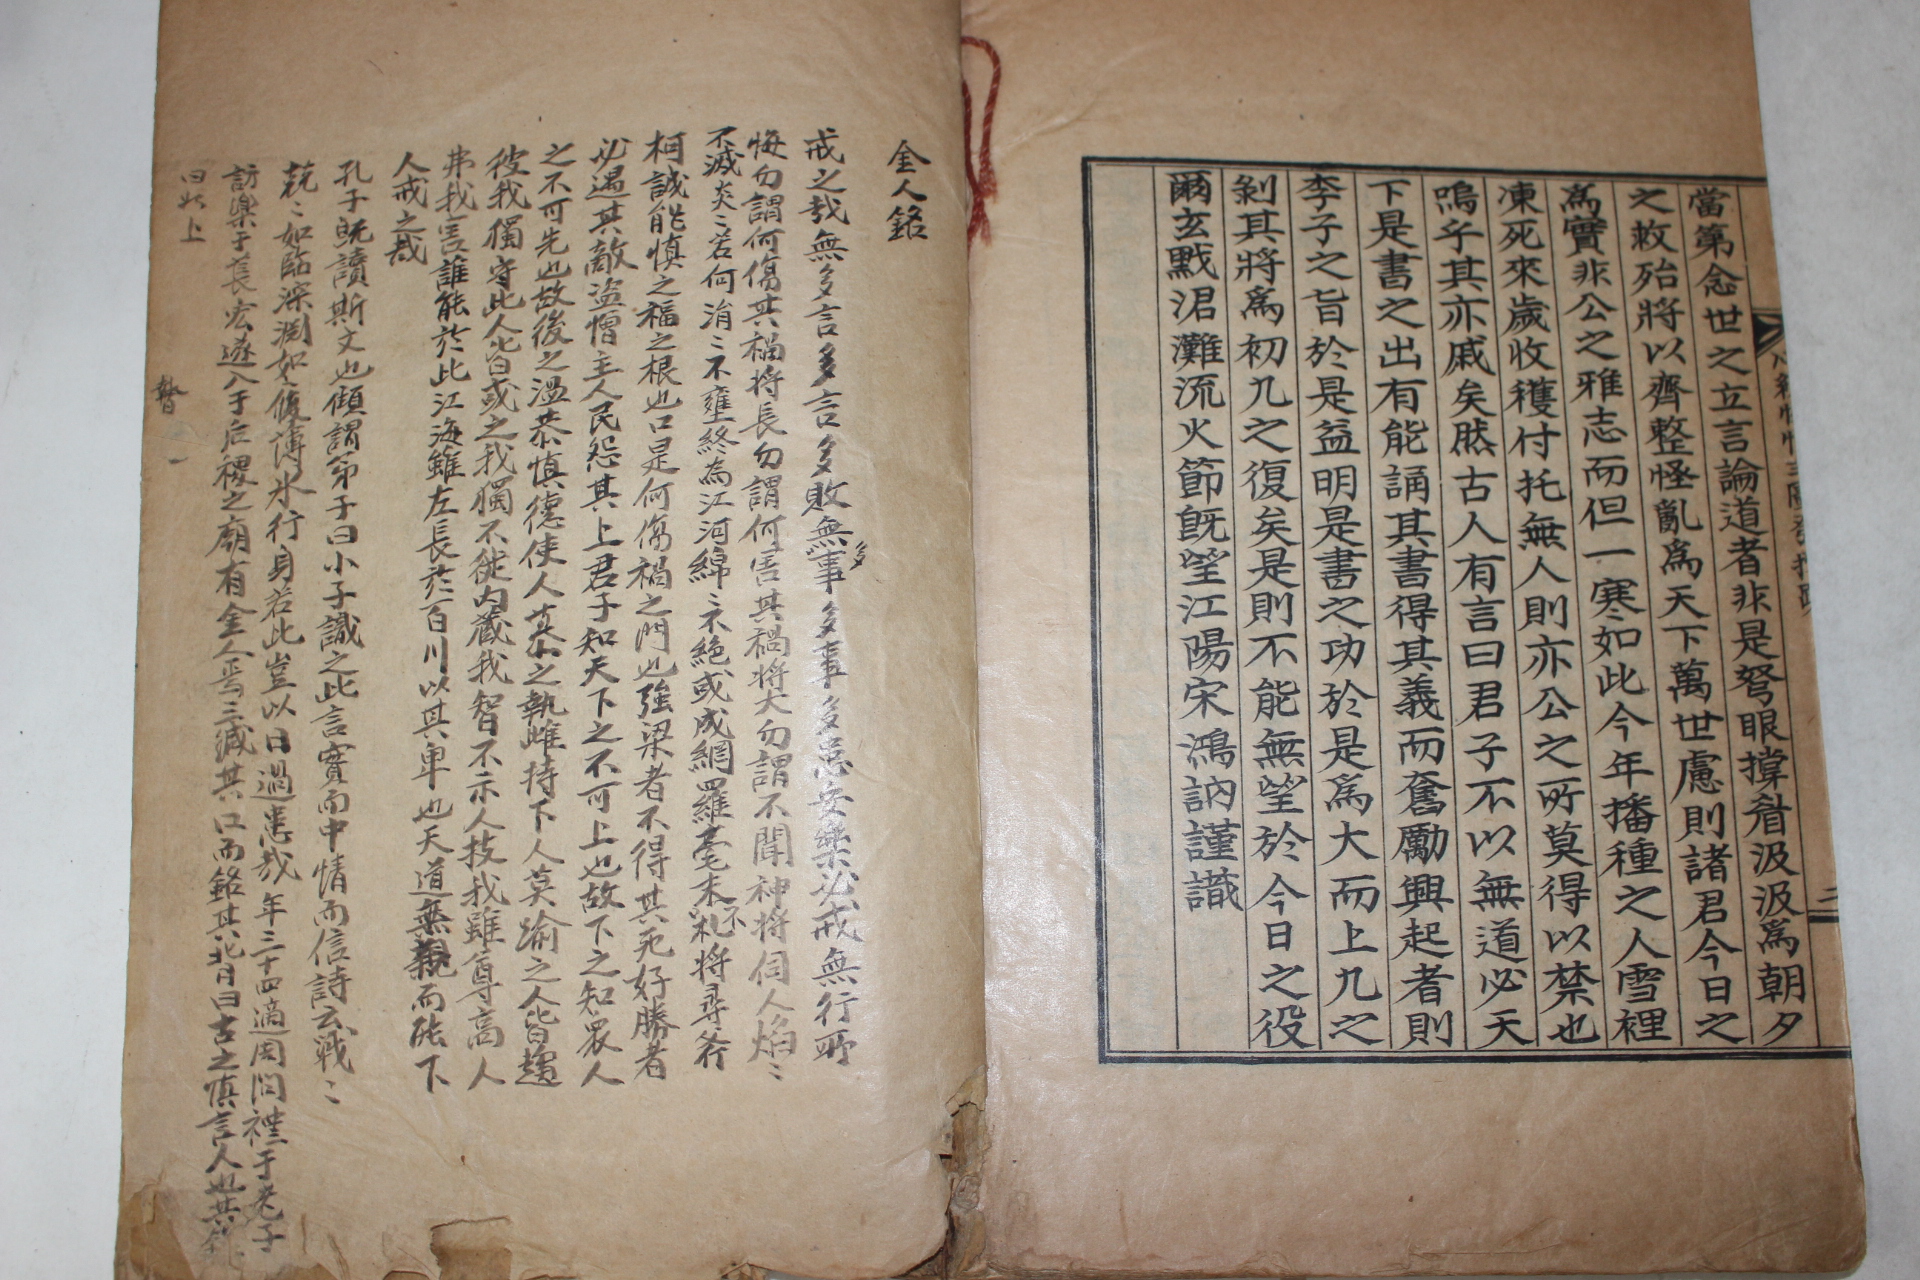 當第念世之立言論道者非是弩眼撑眉汲汲爲朝夕
之救殆將以齊整怪亂爲天下萬世慮則諸君今日之
爲實非公之雅志而但一寒如此今年播種之人雪裡
凍死來歲收穫付托無人則亦公之所莫得以禁也
嗚乎其亦戚矣然古人有言曰君子不以無道必天
下是書之出有能誦其書得其義而奮勵興起者則
李子之旨於是益明是書之功於是爲大而上九之
剝其將爲初九之復矣是則不能無望於今日之役
爾玄黓涒灘流火節旣望江陽宋鴻訥謹識
金人銘
戒之哉無多言多言多敗無多事多事多患安樂必戒無行所
悔勿謂何傷其禍將長勿謂何害其禍將大勿謂不聞神將伺人焰〻
不滅炎〻若何涓〻不壅終為江河綿〻不絕或成網羅毫末不札將尋斧
柯誠能慎之福之根也口是何傷禍之門也強梁者不得其死好勝者
必遇其敵盜憎主人民怨其上君子知天下之不可上也故下之知衆人
之不可先也故後之溫恭慎德使人慕之執雌持下人莫踰之人皆趨
彼我獨守此人皆或之我獨不徙內藏我智不示人技我雖尊高人
弗我害誰能於此江海雖左長於百川以其卑也天道無親而能下
人戒之哉
孔子旣讀斯文也傾謂弟子曰小子識之此言實而中情而信詩云戰〻
兢〻如臨深淵如履薄氷行身若此豈以口過患哉年三十四適周問禮于老子
訪樂于萇宏遂入于后稷之廟有金人焉三緘其口而銘其背曰古之慎言人也其銘
曰此上